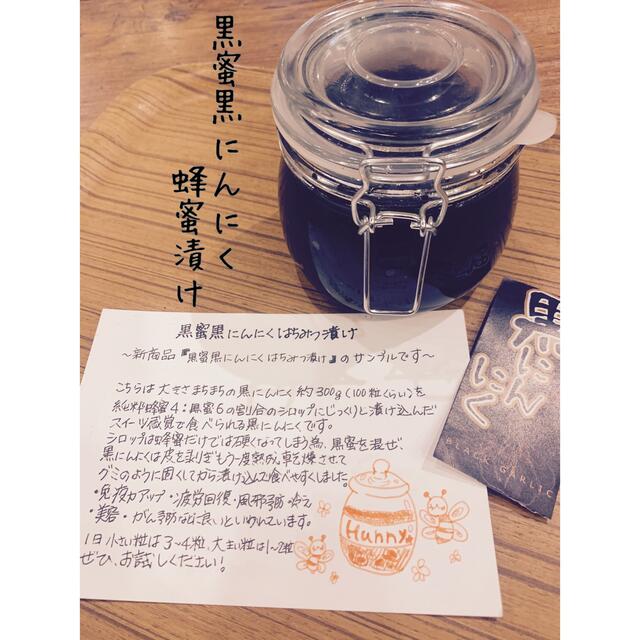 黒蜜黒にんにく
蜂蜜漬け
黒蜜黒にんにくはちみつ漬け
〜新商品『黒蜜黒にんにくはちみつ漬け』のサンプルです〜
こちらは大きさまちまちの黒にんにく約300g(100粒くらい)を
純粋蜂蜜4:黒蜜6の割合のシロップにじっくりと漬け込んだ
スイーツ感覚で食べられる黒にんにくです。
シロップは蜂蜜だけでは硬くなってしまう為、黒蜜を混ぜ、
黒にんにくは皮を剥きもう一度熟成、乾燥させて
グミのように固くしてから漬け込んで食べやすくしました。
・免疫力アップ・疲労回復・風邪予防・冷え
・美容・がん予防などに良いといわれています。
1日小さい粒は3〜4粒、大きい粒は1〜2粒
ぜひ、お試しください!
Hunny
黒にん
にく
BLACK GARLIC